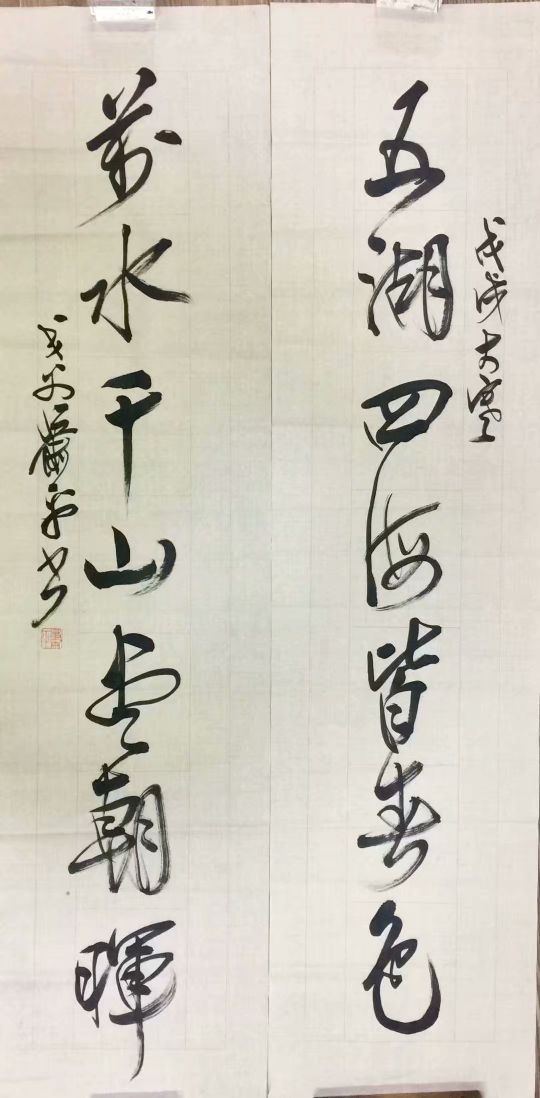 戊戌大寒
五湖四海皆春色
萬水千山尽朝暉
书